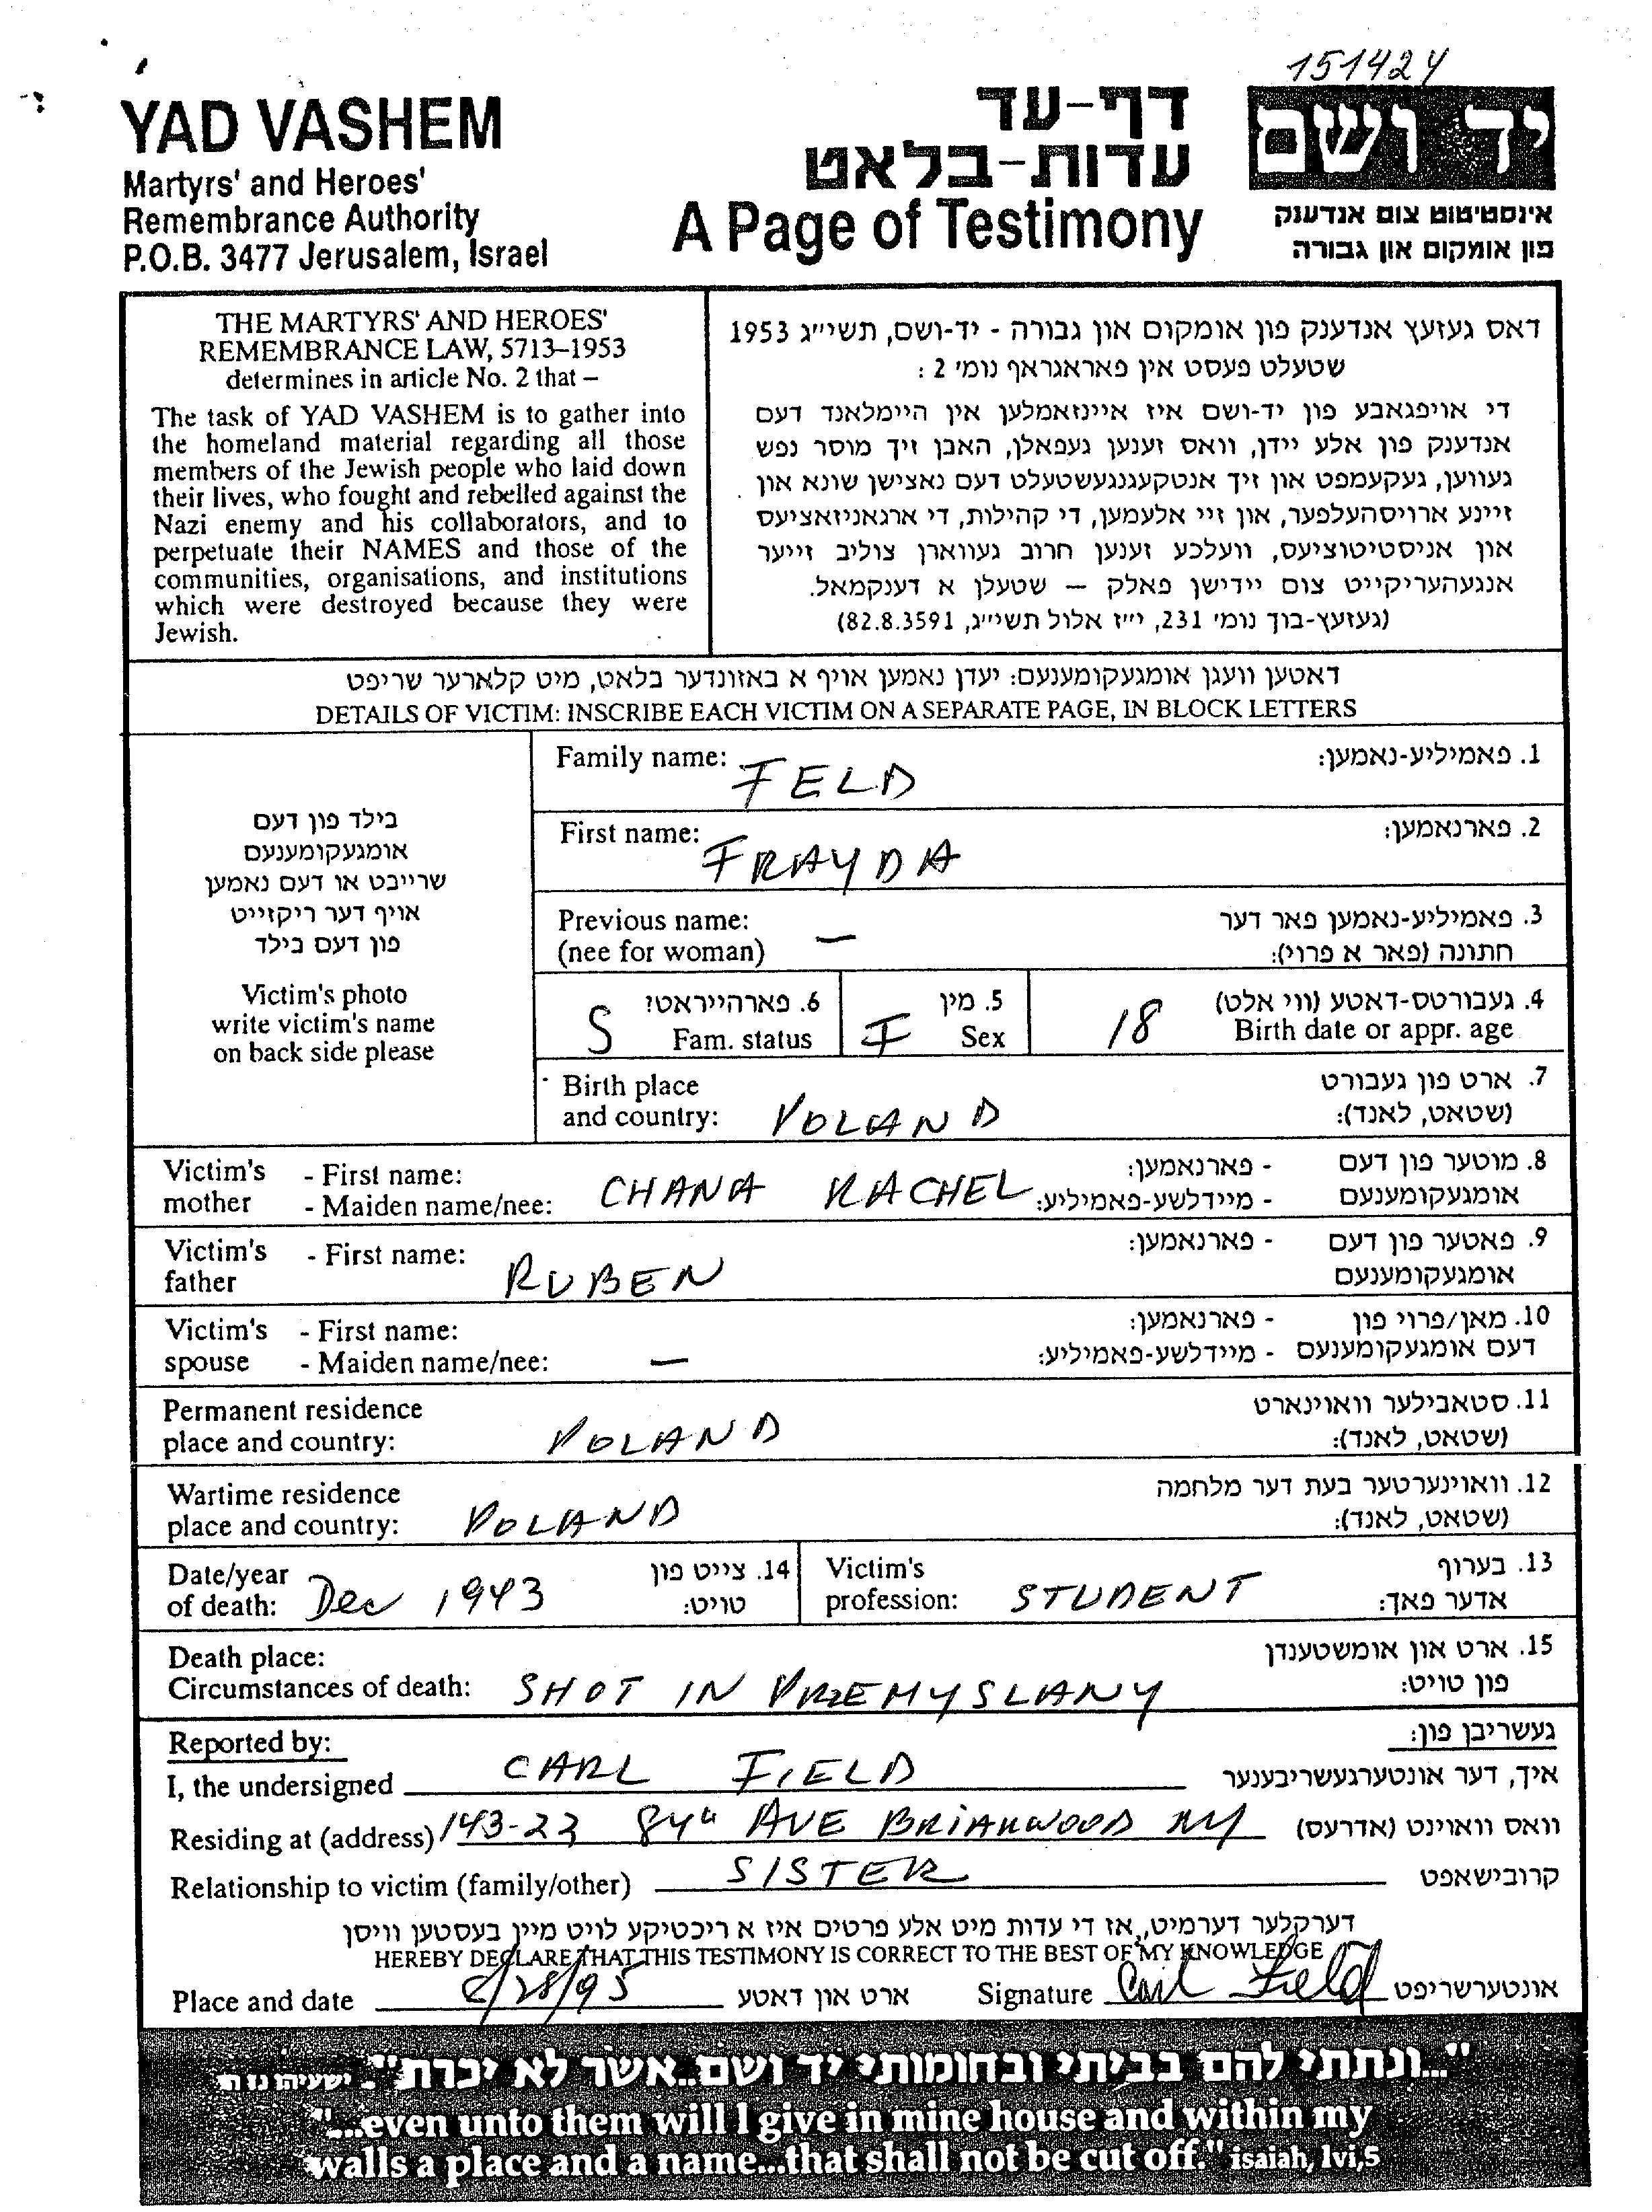 151424
YAD VASHEM
Martyrs' and Heroes'
Remembrance Authority
P.O.B. 3477 Jerusalem, Israel
דף-עד
עדות-בלאט
A Page of Testimony
יד ושם
אינסטיטוט צום אנדענק
פון אומקום און גבורה
THE MARTYRS' AND HEROES'
REMEMBRANCE LAW, 5713–1953
determines in article No. 2 that –
The task of YAD VASHEM is to gather into
the homeland material regarding all those
members of the Jewish people who laid down
their lives, who fought and rebelled against the
Nazi enemy and his collaborators, and to
perpetuate their NAMES and those of the
communities, organisations, and institutions
which were destroyed because they were
Jewish.
דאס געזעץ אנדענק פון אומקום און גבורה - יד-ושם, תשי״ג 1953
שטעלט פעסט אין פאראגראף נומ׳ 2 :
די אויפגאבע פון יד-ושם איז איינזאמלען אין היימלאנד דעם
אנדענק פון אלע יידן, וואס זענען געפאלן, האבן זיך מוסר נפש
געווען, געקעמפט און זיך אנטקעגנגעשטעלט דעם נאצישן שונא און
זיינע ארויסהעלפער, און זיי אלעמען, די קהילות, די ארגאניזאציעס
און אניסטיטוציעס, וועלכע זענען חרוב געווארן צוליב זייער
אנגעהעריקייט צום יידישן פאלק – שטעלן א דענקמאל.
(געזעץ-בוך נומ׳ 231, י״ז אלול תשי״ג, 82.8.3591)
דאטען וועגן אומגעקומענעם: יעדן נאמען אויף א באזונדער בלאט, מיט קלארער שריפט
DETAILS OF VICTIM: INSCRIBE EACH VICTIM ON A SEPARATE PAGE, IN BLOCK LETTERS
בילד פון דעם
אומגעקומענעם
שרייבט או דעם נאמען
אויף דער ריקזייט
פון דעם בילד
Victim's photo
write victim's name
on back side please
Family name: FELD 1. פאמיליע-נאמען:
First name: FRAYDA 2. פארנאמען:
Previous name: 3. פאמיליע-נאמען פאר דער
(nee for woman) — חתונה (פאר א פרוי):
S 6. פארהייראט? F 5. מין 18 4. געבורטס-דאטע (ווי אלט)
Fam. status Sex Birth date or appr. age
Birth place 7. ארט פון געבורט
and country: POLAND (שטאט, לאנד):
Victim's - First name: - פארנאמען: 8. מוטער פון דעם
mother - Maiden name/nee: CHANA RACHEL - מיידלשע-פאמיליע: אומגעקומענעם
Victim's - First name: - פארנאמען: 9. פאטער פון דעם
father RUBEN אומגעקומענעם
Victim's - First name: - פארנאמען: 10. מאן/פרוי פון
spouse - Maiden name/nee: — - מיידלשע-פאמיליע: דעם אומגעקומענעם
Permanent residence 11. סטאבילער וואוינארט
place and country: POLAND (שטאט, לאנד):
Wartime residence 12. וואוינערטער בעת דער מלחמה
place and country: POLAND (שטאט, לאנד):
Date/year 14. צייט פון Victim's 13. בערוף
of death: Dec 1943 טויט: profession: STUDENT אדער פאך:
Death place: 15. ארט און אומשטענדן
Circumstances of death: SHOT IN PRZEMYSLANY פון טויט:
Reported by: געשריבן פון:
I, the undersigned CARL FIELD איך, דער אונטערגעשריבענער
Residing at (address) 143-23 84th AVE BRIARWOOD NY וואס וואוינט (אדרעס)
Relationship to victim (family/other) SISTER קרובישאפט
דערקלער דערמיט, אז די עדות מיט אלע פרטים איז א ריכטיקע לויט מיין בעסטען וויסן
HEREBY DECLARE THAT THIS TESTIMONY IS CORRECT TO THE BEST OF MY KNOWLEDGE
Place and date /28/95 ארט און דאטע Signature Carl Field אונטערשריפט
"...ונתתי להם בביתי ובחומותי יד ושם..אשר לא יכרת". ישעיהו נו ה
"...even unto them will I give in mine house and within my
walls a place and a name...that shall not be cut off." isaiah, lvi,5